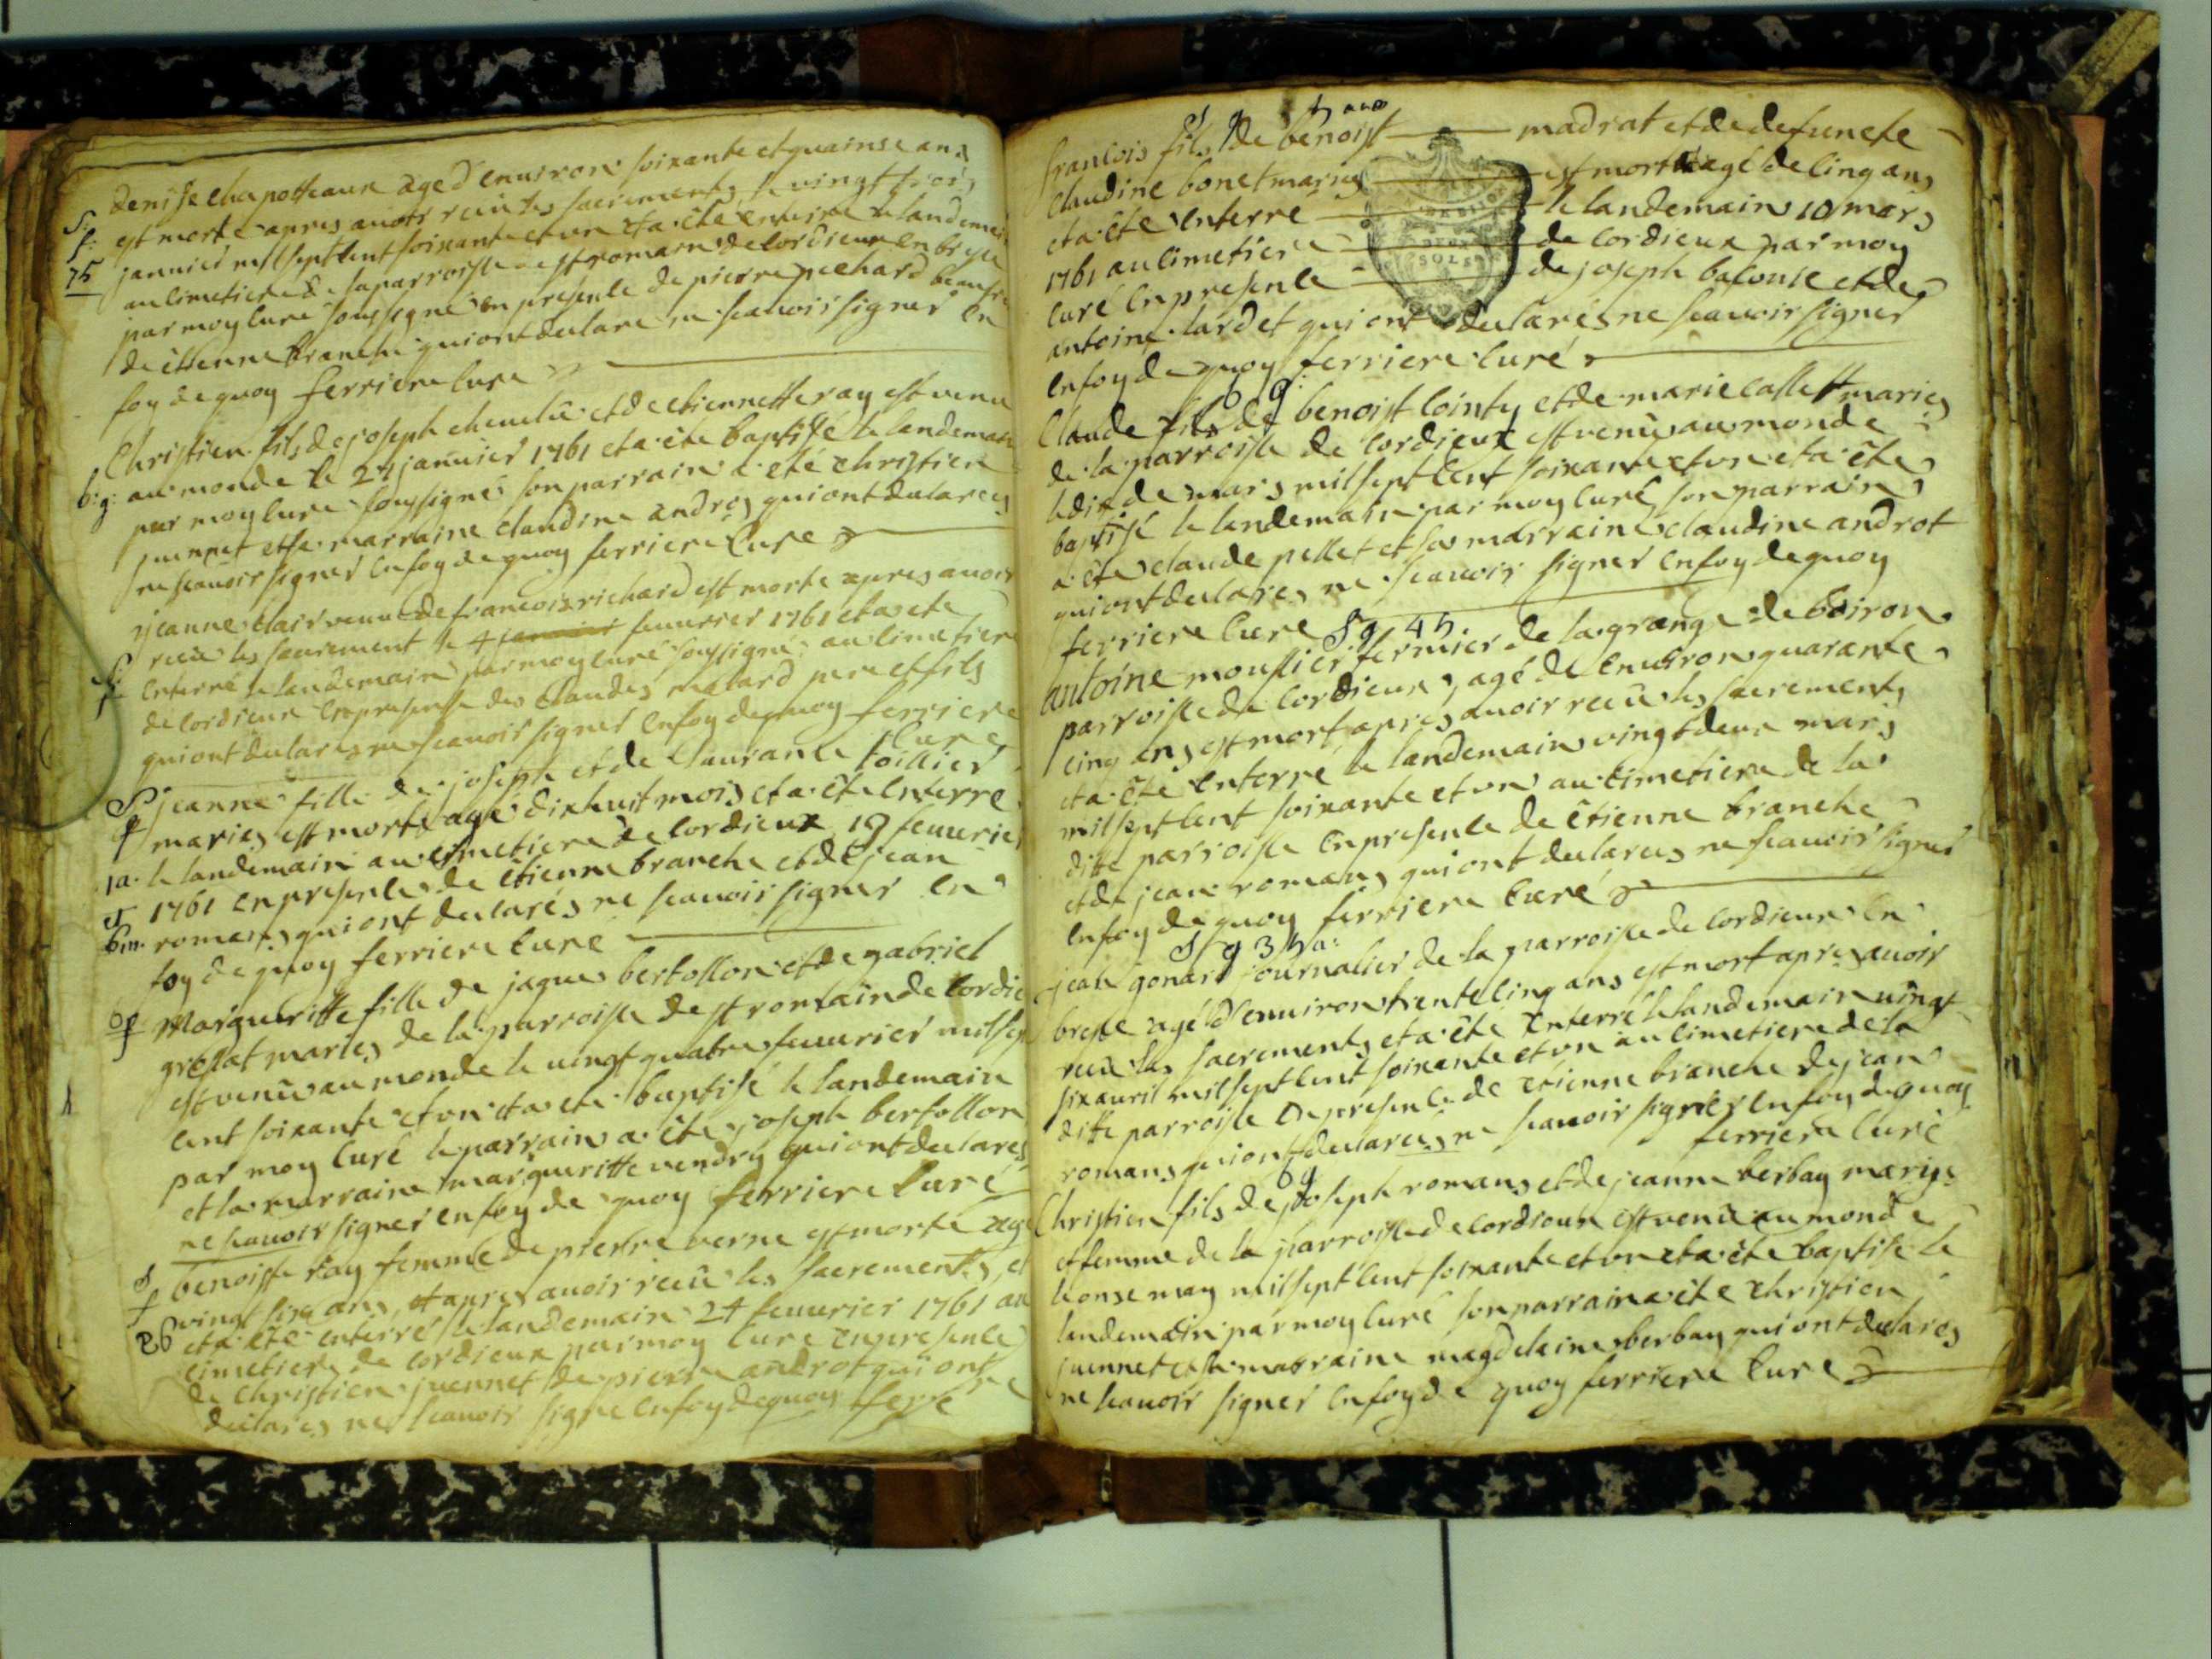 denise chapotteaux age d'environ soixante et quainse ans
S. f. 75
est morte apres avoir recu les sacrements le vingt trois
janvier mil sept cent soixante et un et a été enterre le landemain
au cimetiere de sa parroisse st romain de cordieux en bresse
par moy curé soussigné en presence de pierre pechard
de étienne branche qui ont declare ne scavoir signer en
foy de quoy ferriere curé
Christien fils de joseph chenelu et de etiennette ray est venu
b: g: au monde le 27 janvier 1761 et a été baptisé le landemain
par moy curé soussigné son parrain a été christien
juennet et sa marraine claudine andros qui ont declares
ne scavoir signer en foy de quoy ferriere curé
jeanne clair veuve de francois richard est morte apres avoir
recu les sacrement le 4 janvier feuvrier 1761 et a été
S: f enterré le landemain par moy curé soussigné au cimetiere
de cordieux en presence des claudes matard pere et fils
qui ont declares ne scavoir signer en foy de quoy ferriere
curé
S jeanne fille de joseph et de laurance toillier
f maries est morte age dixhuit mois et a été enterre
1a. le landemain au cimetiere de cordieux 19 feuvrier
et 1761 en presence de étienne branche et de jean
6m. romans qui ont declarés ne scavoir signer en
foy de quoy ferriere curé
b f Margueritte fille de jaques bertollon et de gabriel
grellat maries de la parroisse de st romain de cordieux
est venu au monde le vingt quatre feuvrier mil sept
cent soixante et un et a été baptisé le landemain
par moy curé le parrain a été joseph bertollon
et la marraine marguritte vendry qui ont declares
ne scavoir signer en foy de quoy ferriere curé
S benoiste ray femme de pierre verne est morte age
f vingt six ans, et apres avoir recu les sacrements, et
26 et a été enterré le landemain 24 feuvrier 1761 au
cimetiere de cordieux par moy curé en presence
de christien juennet de pierre androt qui ont
declares ne scavoir signe en foy de quoy
S g 5 ans
francois fils de benoist madrat et de defuncte
claudine bonet maries est mort agé de cinq ans
et a été enterre le landemain 10 mars
1761 au cimetiere de cordieux par moy
curé en presence de joseph balouse et de
antoine lardet qui ont declarés ne scavoir signer
en foy de quoy ferriere curé
b g:
Claude fils de benoist cointy et de marie callet maries
de la parroisse de cordieux est venu au monde
le dix de mars mil sept cent soixante et un et a été
baptisé le landemain par moy curé son parrain
a été claude pellet et sa marraine claudine androt
qui ont declares ne scavoir signer en foy de quoy
ferriere curé
S g 45
antoine moussier fermier de la grange de boiron
parroisse de cordieux, agé de environ quarante
cinq ans est mort apres avoir recu les sacrements
et a été enterré le landemain vingt deux mars
mil sept cent soixante et un au cimetiere de la
ditte parroisse en presence de étienne branche
et de jean romans qui ont declares ne scavoir signer
en foy de quoy ferriere curé
S g 35 a:
jean gonard journalier de la parroisse de cordieux en
bresse agé d'environ trente cinq ans est mort apres avoir
recu les sacrements et a été enterré le landemain vingt
six avril mil sept cent soixante et un au cimetiere de la
ditte parroisse en presence de étienne branche de jean
romans qui ont declares ne scavoir signer en foy de quoy
ferriere curé
b g
Christien fils de joseph romans et de jeanne berbay maries
et femme de la parroisse de cordieux est venu au monde
le onse may mil sept cent soixante et un et a été baptisé le
landemain par moy curé son parrain a été christien
juennet et sa marraine magdelaine berbay qui ont declares
ne scavoir signer en foy de quoy ferriere curé
DEUX
SOLS